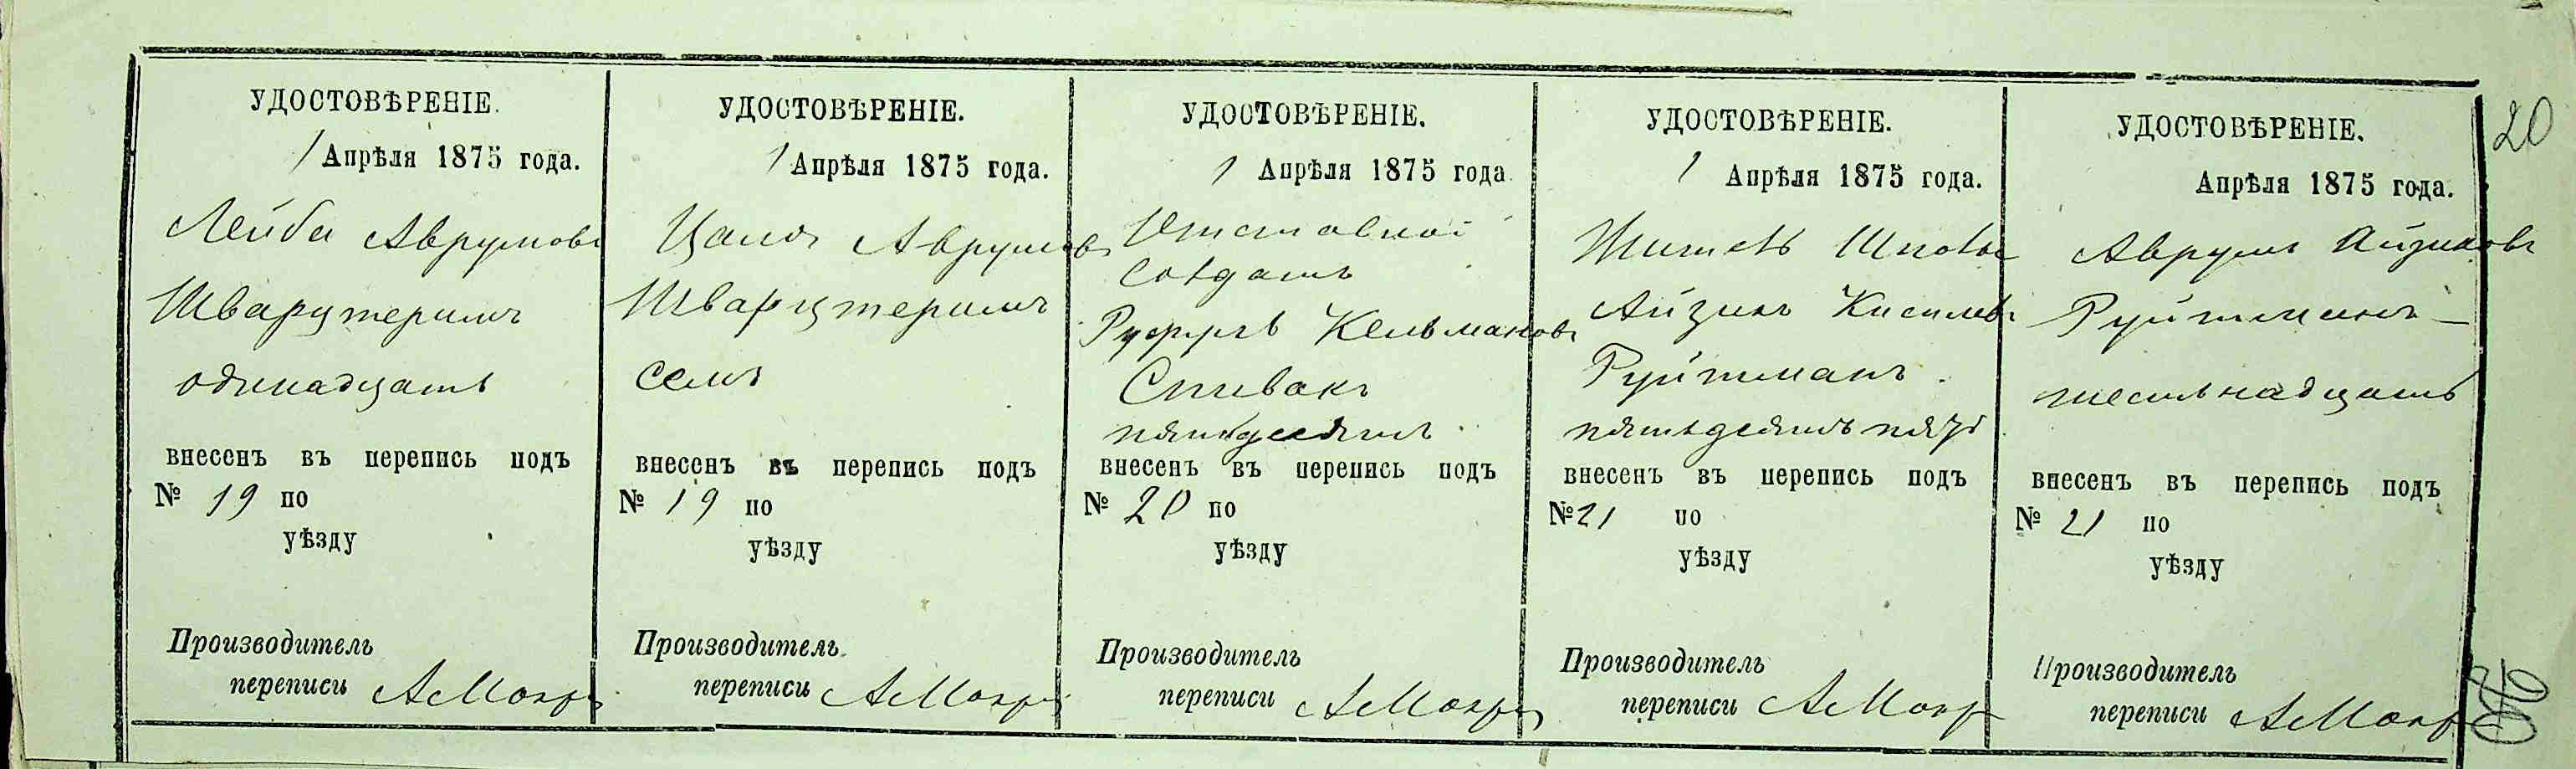 20
УДОСТОВѢРЕНІЕ.
1 Апрѣля 1875 года.
Лейба Аврумовъ
Шварцтеримъ
одинадцать
внесенъ въ перепись подъ
№ 19 по
уѣзду
Производитель
переписи
УДОСТОВѢРЕНІЕ.
1 Апрѣля 1875 года.
Аврумовъ
Шварцтеримъ
семь
внесенъ въ перепись подъ
№ 19 по
уѣзду
Производитель
переписи
УДОСТОВѢРЕНІЕ.
1 Апрѣля 1875 года
Отставной
Солдатъ
Кельмановъ
Спивакъ
пятьдесятъ
внесенъ въ перепись подъ
№ 20 по
уѣзду
Производитель
переписи
УДОСТОВѢРЕНІЕ.
1 Апрѣля 1875 года.
Житель
Айзикъ
Руйтманъ.
пятьдесятъ пять
внесенъ въ перепись подъ
№ 21 по
уѣзду
Производитель
переписи
УДОСТОВѢРЕНІЕ.
Апрѣля 1875 года.
Аврумъ Айзиковъ
Руйтманъ
шестьнадцать
внесенъ въ перепись подъ
№ 21 по
уѣзду
Производитель
переписи